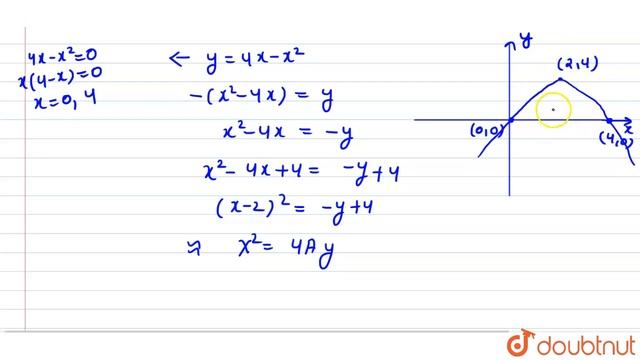 4x-x²=0
x(4-x)=0
x=0, 4
← y = 4x-x²
-(x²-4x) = y
x²-4x = -y
x²- 4x+4 = -y+4
(x-2)² = -y+4
≈ x²= 4Ay
y
(2,4)
(0,0)
x
(4,0)
doubtnut